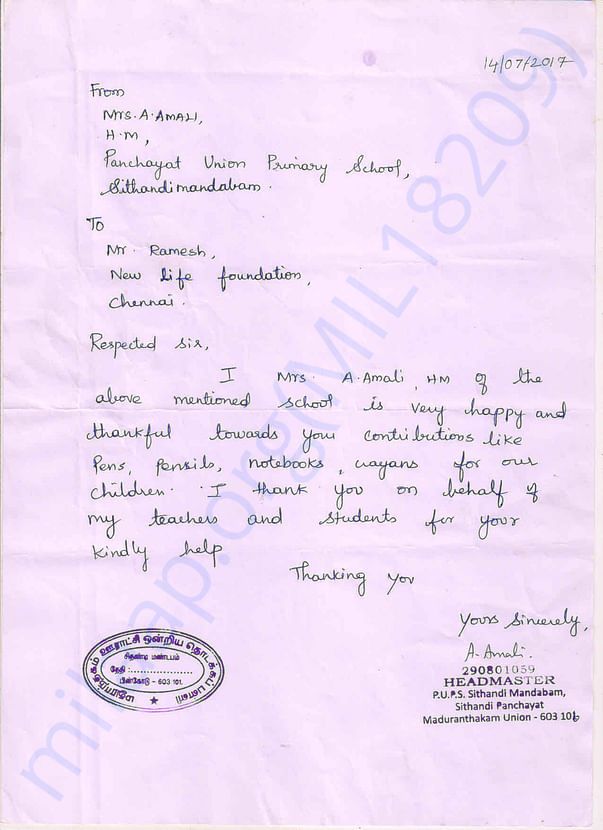 14/07/2017
From
Mrs. A. AMALI,
H.M,
Panchayat Union Primary School,
Sithandimandabam.
To
Mr. Ramesh,
New life foundation,
Chennai.
Respected Sir,
I Mrs. A. Amali, HM of the
above mentioned school is very happy and
thankful towards your contributions like
Pens, pensils, notebooks, crayans for our
children. I thank you on behalf of
my teachers and students for your
kindly help
Thanking you
Yours Sincerely,
A. Amali.
290801059
HEADMASTER
P.U.P.S. Sithandi Mandabam,
Sithandi Panchayat
Maduranthakam Union - 603 106
ஊராட்சி ஒன்றிய தொடக்கப் பள்ளி
சிதண்டி மண்டபம்
தேதி :...............
பின்கோடு - 603 101.
milaap.org(MIL18209)